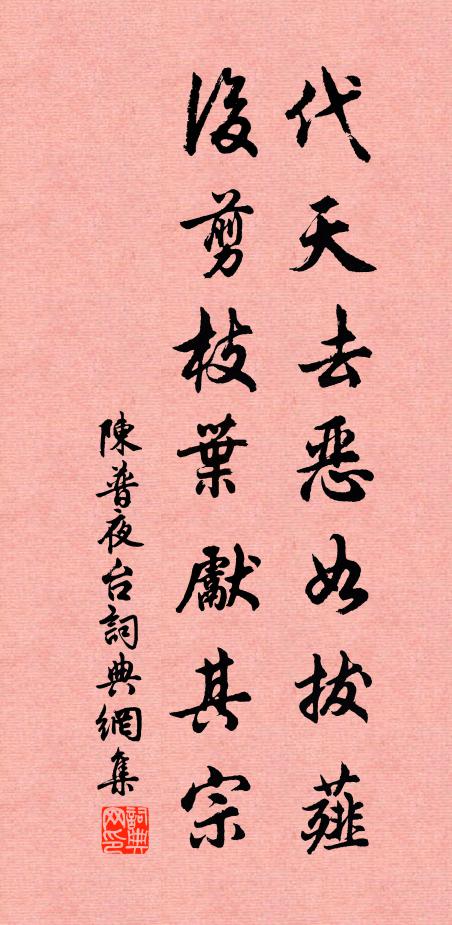 代天去惡如拔薤
後剪枝葉獻其宗
陳普夜台詞典網集
詞典网印